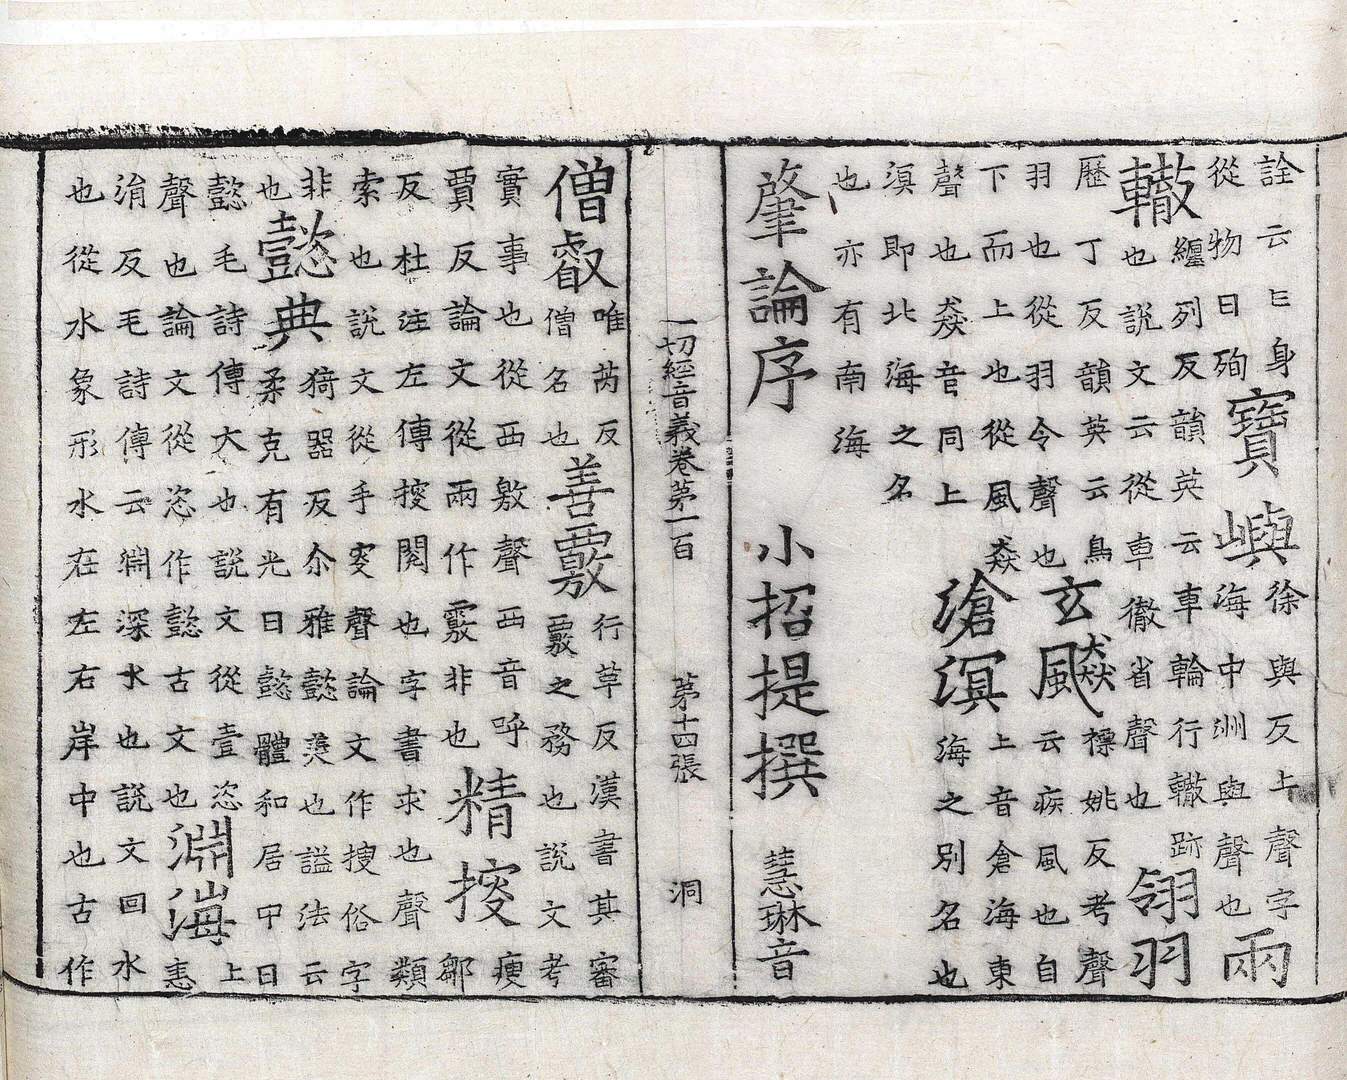 詮云㠯身
從物曰殉
寶嶼
徐與反上聲字
海中洲與聲也
兩
轍
纏列反韻英云車輪行轍跡
也說文云從車徹省聲也
翎羽
歷丁反韻英云鳥
羽也從羽令聲也
玄飈
褾姚反考聲
云疾風也自
下而上也從風猋
聲也猋音同上
滄溟
上音倉海東
海之別名也
溟即北海之名
也亦有南海
肇論序 小招提撰 慧琳音
一切經音義卷第一百 第十四張 洞
僧叡
唯芮反
僧名也
善覈
行革反漢書其審
覈之務也說文考
實事也從襾敫聲襾音呼
賈反論文從兩作覈非也
精搜
瘦
鄒
反杜注左傳搜閱也字書求也聲類
索也說文從手叜聲論文作搜俗字
非
也
懿典
猗器反尒雅懿美也謚法云
柔克有光曰懿體和居中曰
懿毛詩傳大也說文從壹恣
聲也論文從恣作懿古文也
淵海
上
恚
涓反毛詩傳云淵深水也說文回水
也從水象形水在左右岸中也古作